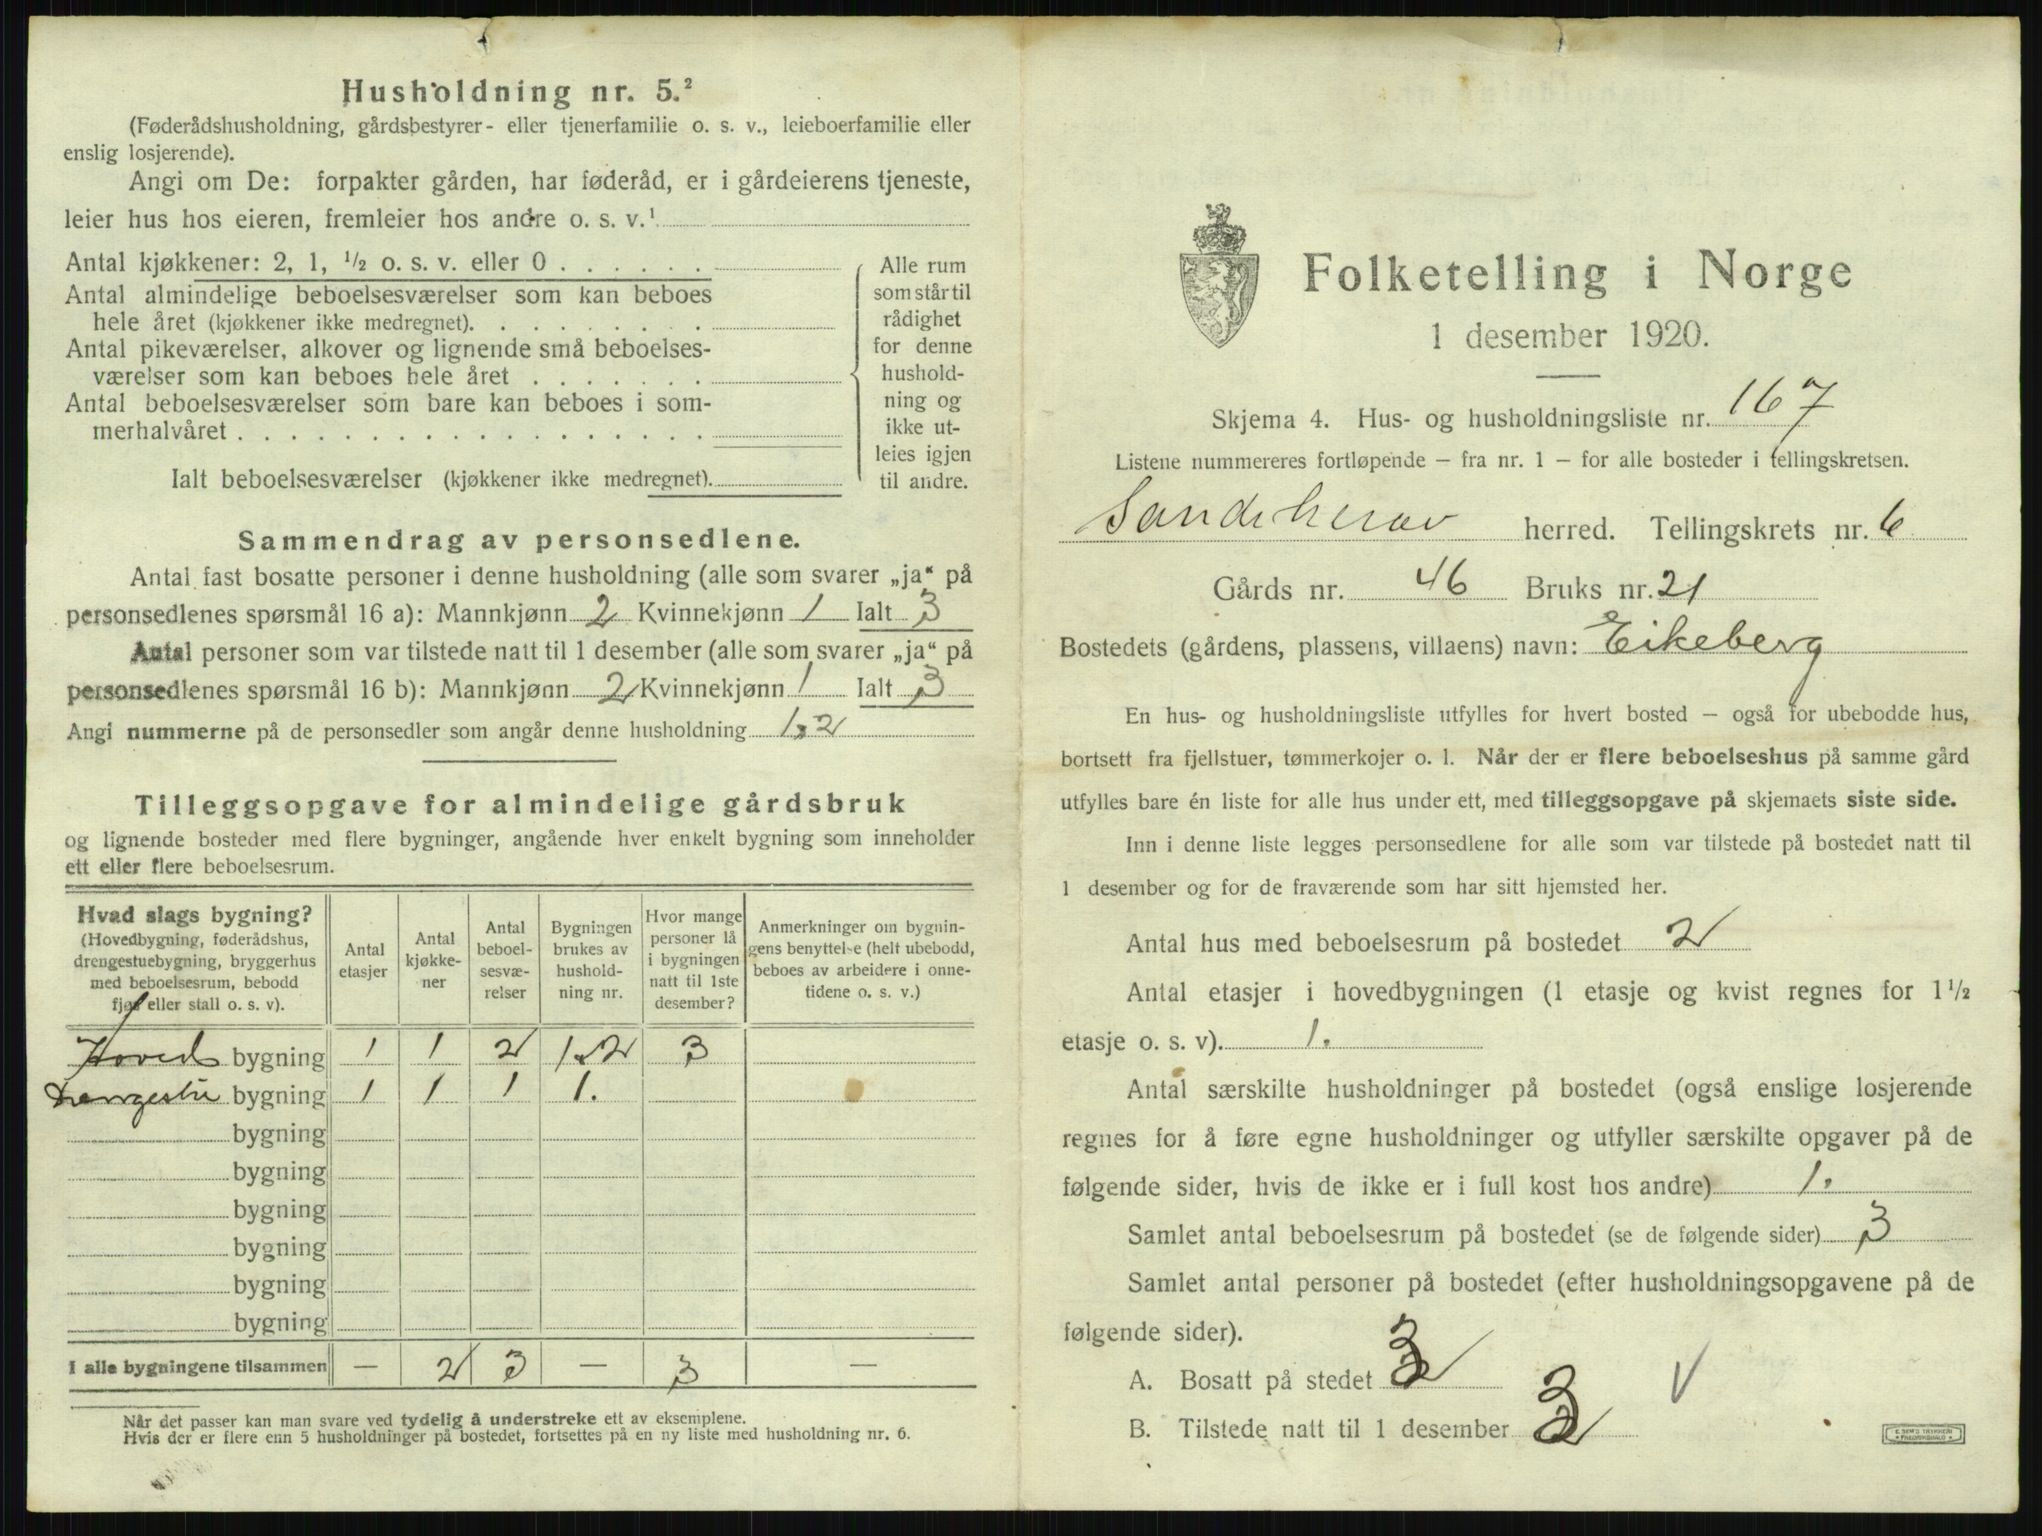 Husholdning nr. 5.²
(Føderådshusholdning, gårdsbestyrer- eller tjenerfamilie o. s. v., leieboerfamilie eller
enslig losjerende).
Angi om De: forpakter gården, har føderåd, er i gårdeierens tjeneste,
leier hus hos eieren, fremleier hos andre o. s. v.¹
Antal kjøkkener: 2, 1, ½ o. s. v. eller 0 . . . . . .
Antal almindelige beboelsesværelser som kan beboes
hele året (kjøkkener ikke medregnet). . . . . . . . .
Antal pikeværelser, alkover og lignende små beboelses-
værelser som kan beboes hele året . . . . . . .
Antal beboelsesværelser som bare kan beboes i som-
merhalvåret . . . . . . . . . . . . . . . . . .
Ialt beboelsesværelser (kjøkkener ikke medregnet).
Alle rum
som står til
rådighet
for denne
hushold-
ning og
ikke ut-
leies igjen
til andre.
Sammendrag av personsedlene.
Antal fast bosatte personer i denne husholdning (alle som svarer „ja“ på
personsedlenes spørsmål 16 a): Mannkjønn 2 Kvinnekjønn 1 Ialt 3
Antal personer som var tilstede natt til 1 desember (alle som svarer „ja“ på
personsedlenes spørsmål 16 b): Mannkjønn 2 Kvinnekjønn 1 Ialt 3
Angi nummerne på de personsedler som angår denne husholdning 1.2
Tilleggsopgave for almindelige gårdsbruk
og lignende bosteder med flere bygninger, angående hver enkelt bygning som inneholder
ett eller flere beboelsesrum.
Hvad slags bygning?
(Hovedbygning, føderådshus,
drengestuebygning, bryggerhus
med beboelsesrum, bebodd
fjøs eller stall o. s. v).
Antal
etasjer
Antal
kjøkke-
ner
Antal
beboel-
sesvæ-
relser
Bygningen
brukes av
hushold-
ning nr.
Hvor mange
personer lå
i bygningen
natt til 1ste
desember?
Anmerkninger om bygnin-
gens benyttelse (helt ubebodd,
beboes av arbeidere i onne-
tidene o. s. v.)
Hoved bygning 1 1 2 1.2 3
Drengestu bygning 1 1 1 1.
bygning
bygning
bygning
bygning
bygning
bygning
I alle bygningene tilsammen — 2 3 — 3 —
Når det passer kan man svare ved tydelig å understreke ett av eksemplene.
Hvis der er flere enn 5 husholdninger på bostedet, fortsettes på en ny liste med husholdning nr. 6.
Folketelling i Norge
1 desember 1920.
Skjema 4. Hus- og husholdningsliste nr. 167
Listene nummereres fortløpende – fra nr. 1 – for alle bosteder i tellingskretsen.
Sandeherav herred. Tellingskrets nr. 6
Gårds nr. 46 Bruks nr. 21
Bostedets (gårdens, plassens, villaens) navn: Eikeberg
En hus- og husholdningsliste utfylles for hvert bosted – også for ubebodde hus,
bortsett fra fjellstuer, tømmerkojer o. l. Når der er flere beboelseshus på samme gård
utfylles bare én liste for alle hus under ett, med tilleggsopgave på skjemaets siste side.
Inn i denne liste legges personsedlene for alle som var tilstede på bostedet natt til
1 desember og for de fraværende som har sitt hjemsted her.
Antal hus med beboelsesrum på bostedet 2
Antal etasjer i hovedbygningen (1 etasje og kvist regnes for 1½
etasje o. s. v). 1.
Antal særskilte husholdninger på bostedet (også enslige losjerende
regnes for å føre egne husholdninger og utfyller særskilte opgaver på de
følgende sider, hvis de ikke er i full kost hos andre) 1.
Samlet antal beboelsesrum på bostedet (se de følgende sider) 3
Samlet antal personer på bostedet (efter husholdningsopgavene på de
følgende sider).
A. Bosatt på stedet 3
B. Tilstede natt til 1 desember 3